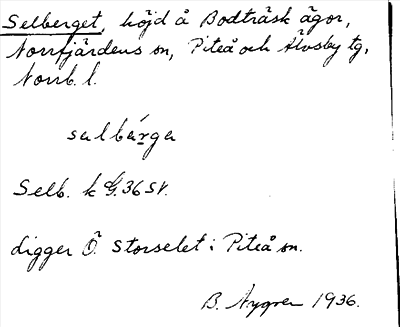 Selberget, höjd å Bodträsk ägor,
Norrfjärdens sn, Piteå och Älvsby tg,
Norrb. l.
salbárga
Selb. k G. 36 SV.
Ligger Ö. Storselet i Piteå sn.
B. Nygren 1936.